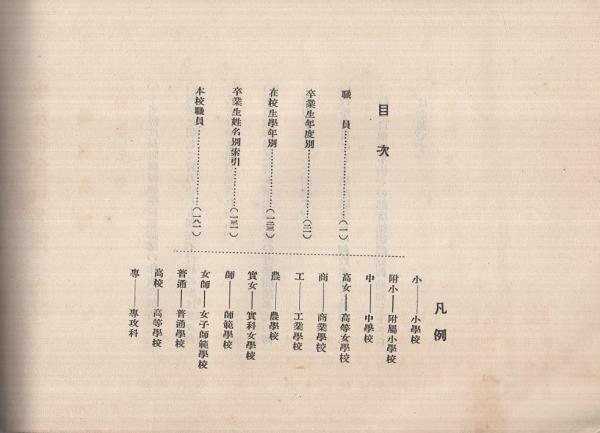 目次
職員…………(一)
卒業生年度別…………(二)
在校生學年別…………(一二三)
卒業生姓名別索引…………(一三一)
本校職員…………(一八一)
凡例
小——小學校
附小——附屬小學校
中——中學校
高女——高等女學校
商——商業學校
工——工業學校
農——農學校
實女——實科女學校
師——師範學校
女師——女子師範學校
普通——普通學校
高校——高等學校
專——專攻科